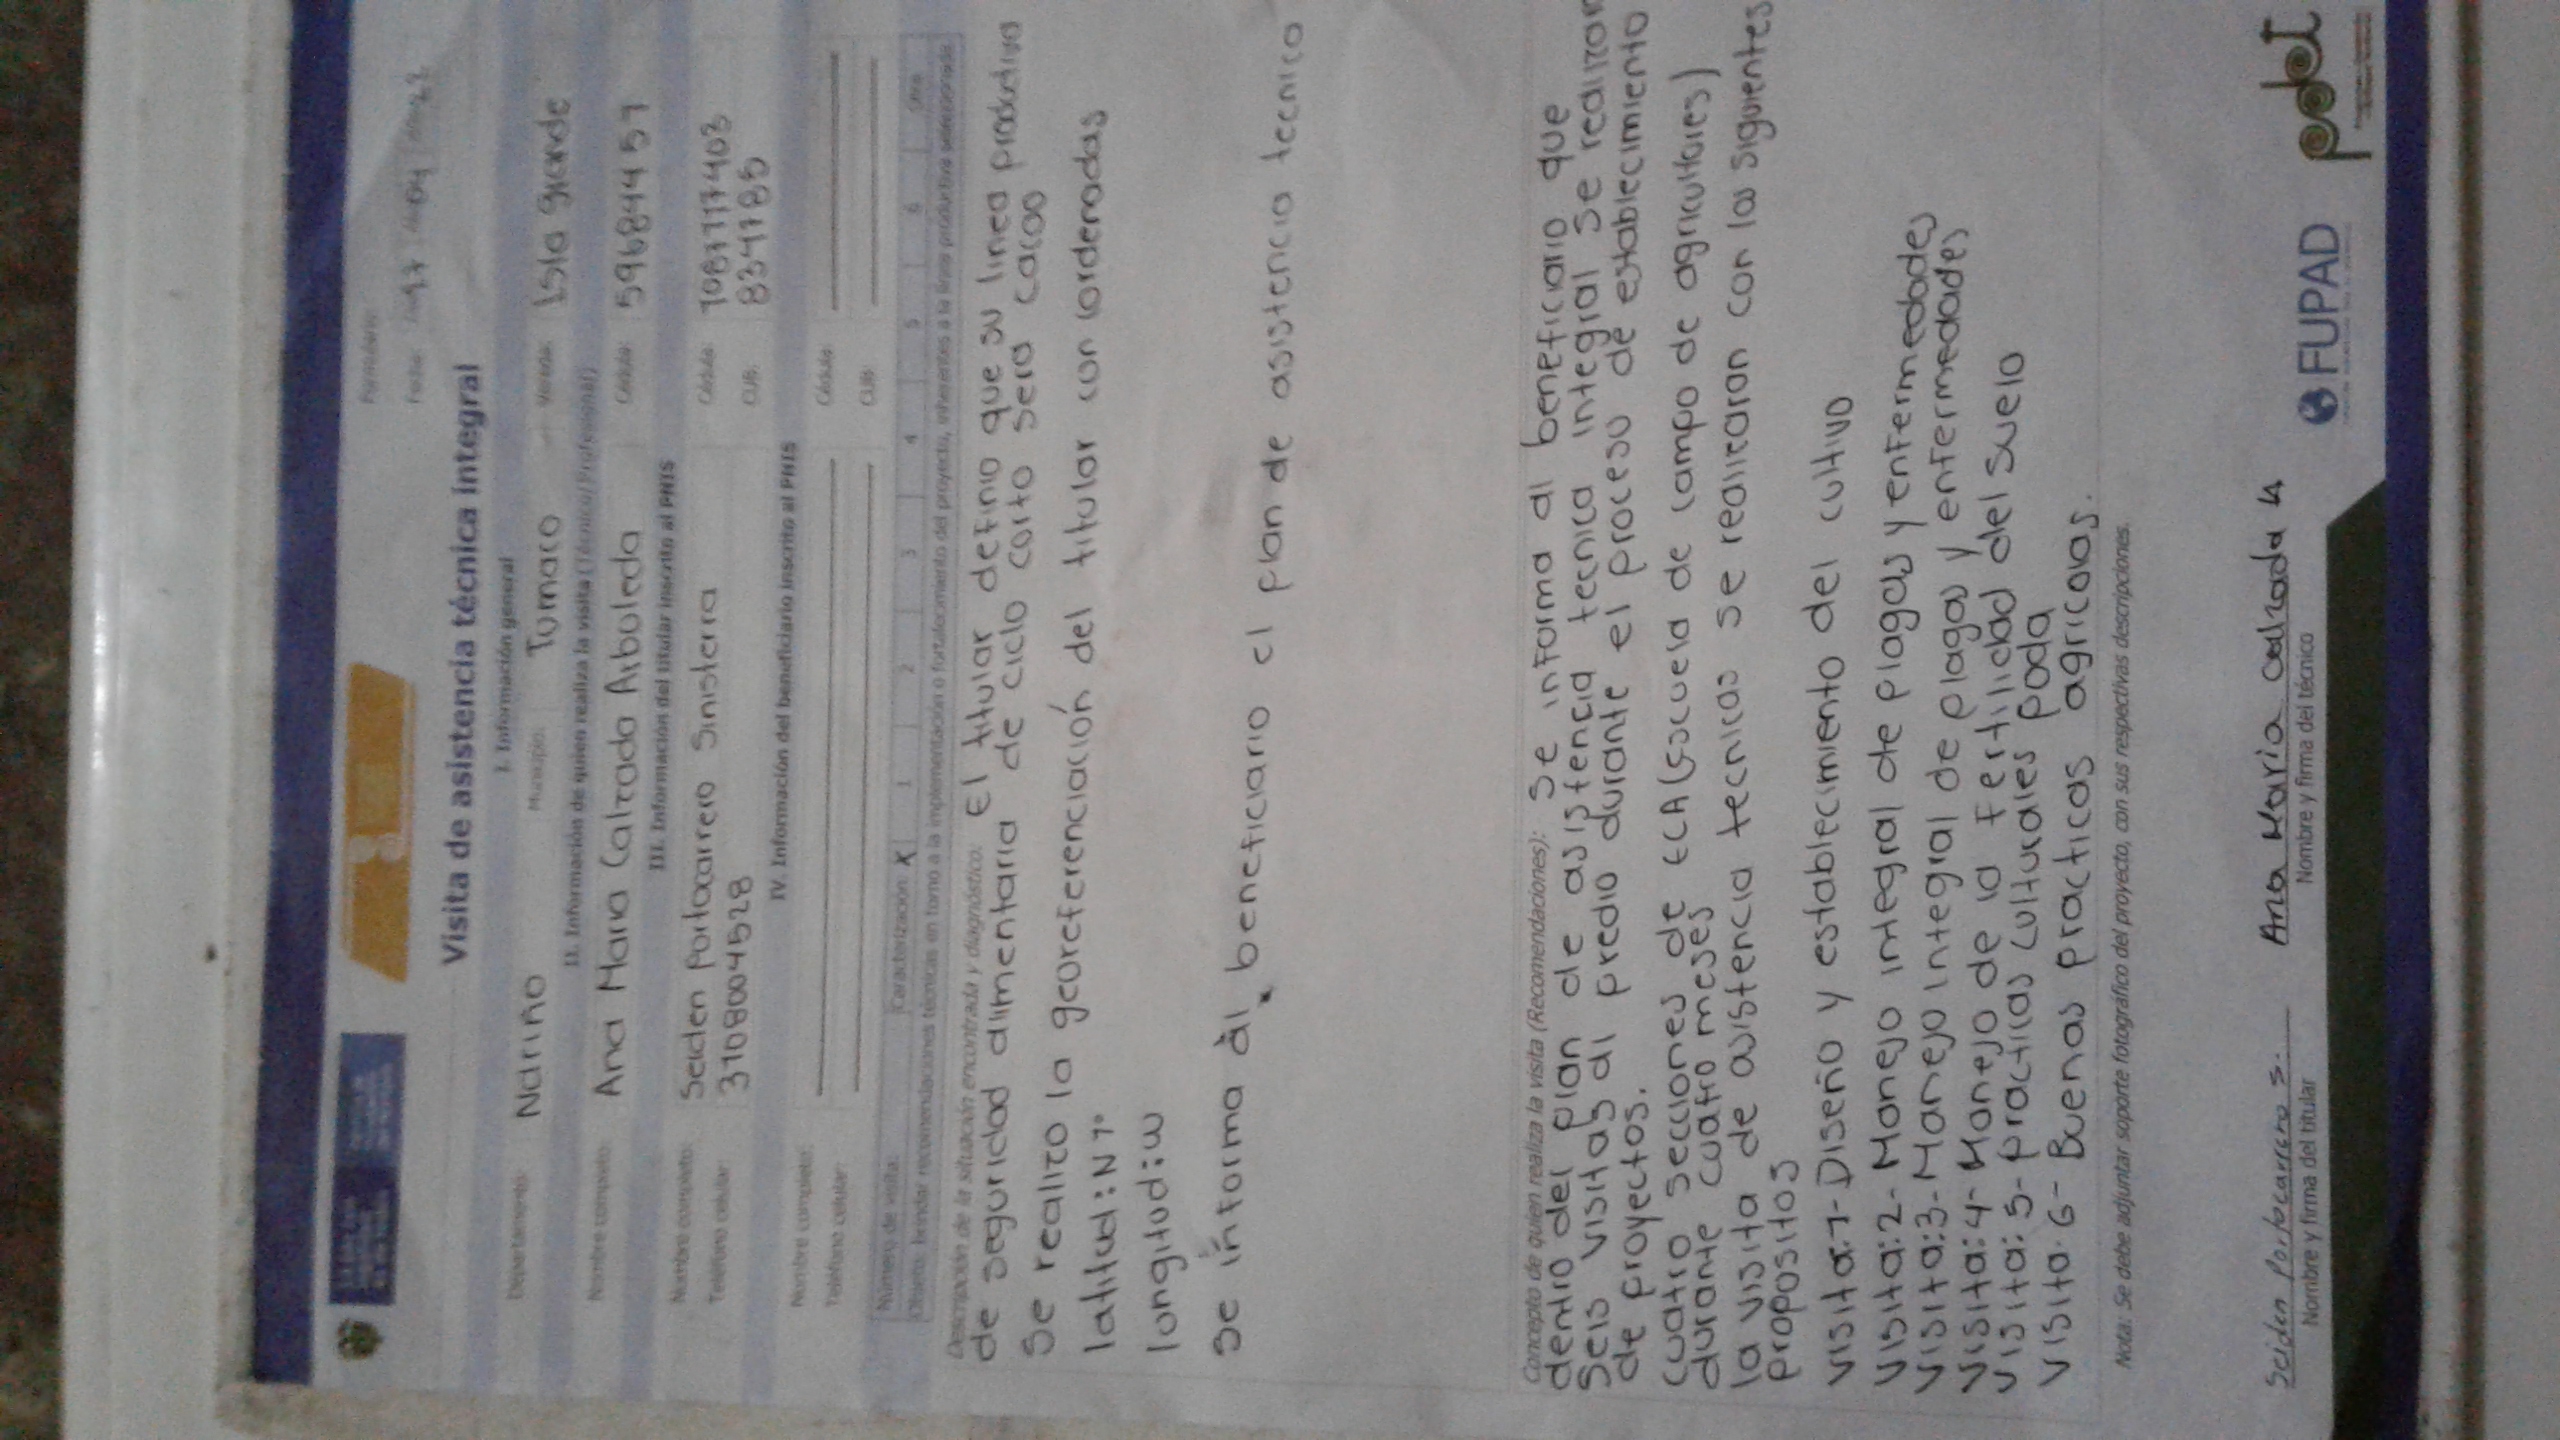 Formulario:
Fecha:
Visita de asistencia técnica integral
I. Información general
Departamento: Nariño Municipio: Tumaco Vereda: Isla grande
II. Información de quien realiza la visita (Técnico/Profesional)
Nombre completo: Ana Maria Calzada Arboleda Cédula: 596844 59
III. Información del titular inscrito al PNIS
Nombre completo: Seiden Portocarrero Sinisterra Cédula: 1087117403
Teléfono celular: 3108004528 CUB: 8341785
IV. Información del beneficiario inscrito al PNIS
Nombre completo: Cédula:
Teléfono celular: CUB:
Número de visita: Caracterización: X 1 2 3 4 5 6 Otra
Objeto: brindar recomendaciones técnicas en torno a la implementación o fortalecimiento del proyecto, inherentes a la línea productiva seleccionada
Descripción de la situación encontrada y diagnóstico: El titular definio que su linea productiva
de seguridad alimentaria de ciclo corto sera cacao
Se realizo la georeferenciación del titular con cordenadas
latitud: N 1°
longitud: W
se informa al beneficiario el plan de asistencia tecnico
Concepto de quien realiza la visita (Recomendaciones): Se informa al beneficiario que
dentro del plan de asistencia tecnica integral se realizaran
Seis visitas al predio durante el proceso de establecimiento
de proyectos.
Cuatro secciones de ECA (Escuela de campo de agricultores)
durante cuatro meses
la visita de asistencia tecnicas se realizaran con los siguientes
propositos
Visita:1- Diseño y establecimiento del cultivo
Visita:2- Manejo integral de plagas y enfermedades
Visita:3- Manejo integral de plagas y enfermedades
Visita:4- Manejo de la fertilidad del suelo
Visita:5- practicas culturales poda
Visita.6- Buenas practicas agricolas.
Nota: Se debe adjuntar soporte fotográfico del proyecto, con sus respectivas descripciones.
Seiden Portocarrero S.
Nombre y firma del titular
Ana Maria Calzada A
Nombre y firma del técnico
FUPAD
pdet